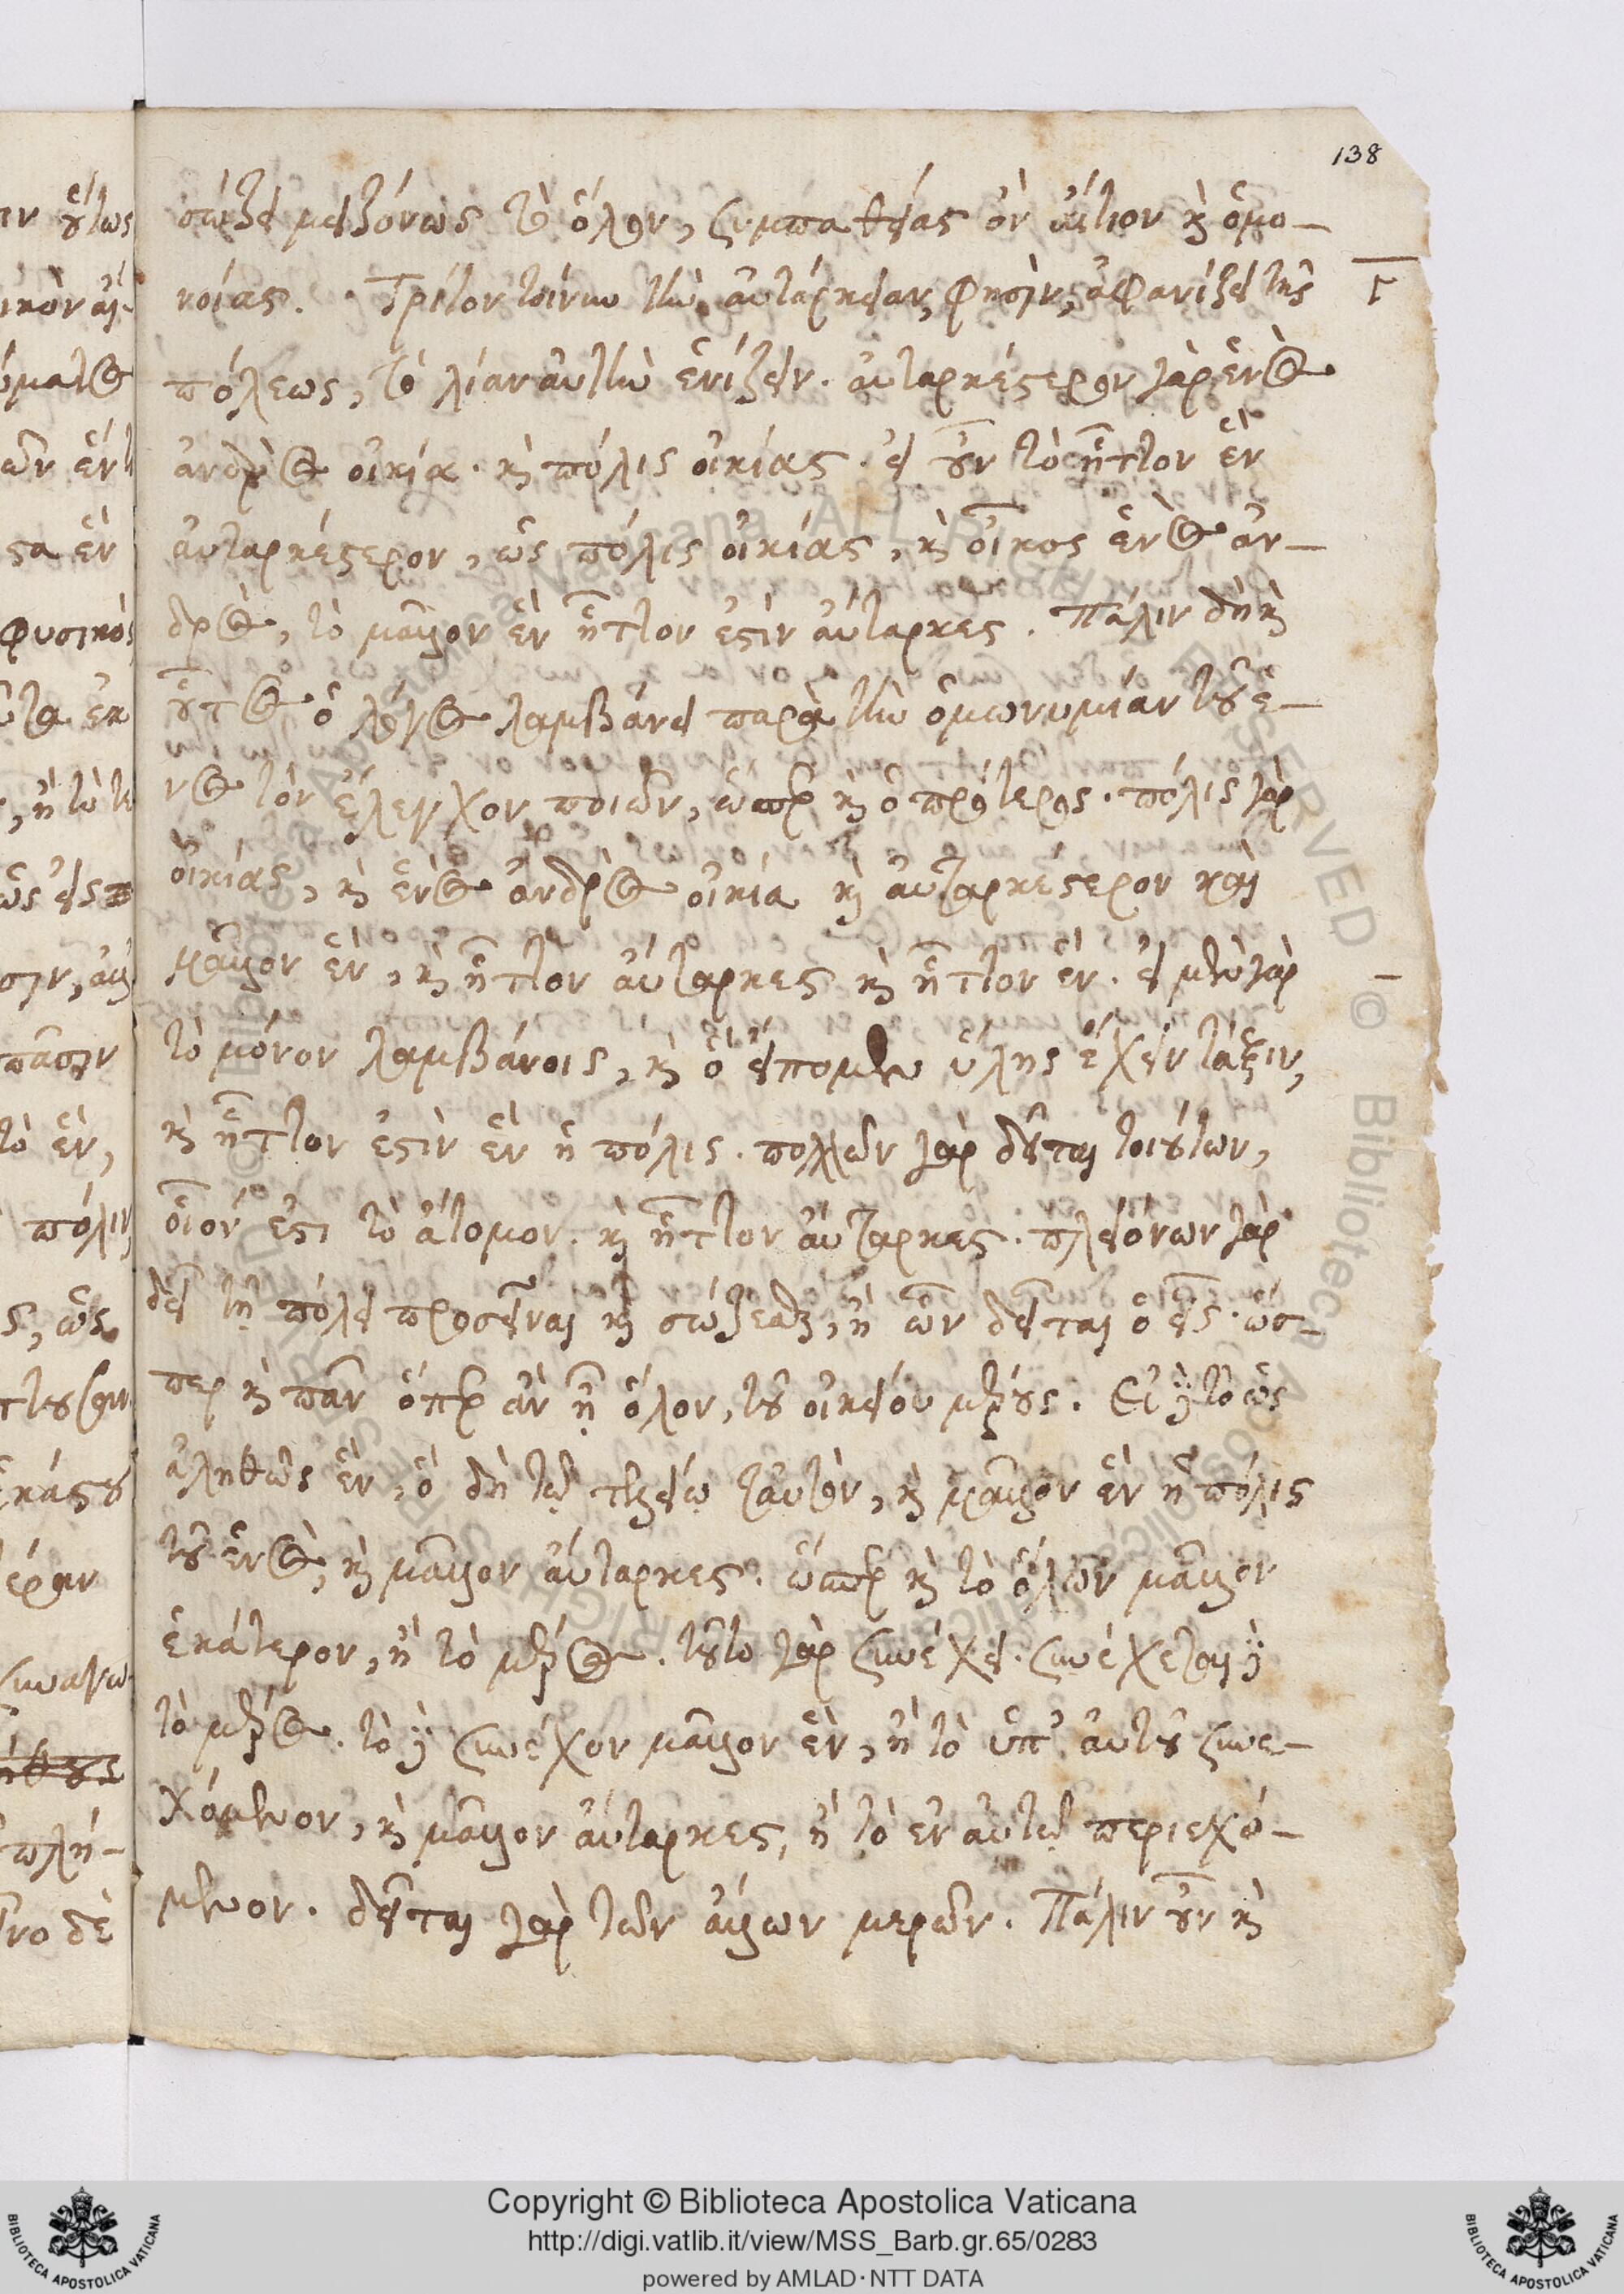 138
σώζει μειζόνως τὸ ὅλον, συμπαθείας ὂν αἴτιον καὶ ὁμο-
νοίας. Τρίτον τοίνυν τὴν αὐτάρκειαν, φησὶν, ἀφανίζει τῆς
Γ
πόλεως, τὸ λίαν αὐτὴν ἑνίζειν. αὐταρκέστερον γὰρ ἑνὸς
ἀνδρὸς οἰκία. καὶ πόλις οἰκίας. εἰ οὖν τὸ ἧττον ἓν
αὐταρκέστερον, ὡς πόλις οἰκίας, καὶ οἶκος ἑνὸς ἀν-
δρὸς, τὸ μᾶλλον ἓν ἧττον ἐστὶν αὔταρκες. Πάλιν δὴ καὶ
οὗτος ὁ λόγος λαμβάνει παρὰ τὴν ὁμωνυμίαν τοῦ ἑ-
νὸς τὸν ἔλεγχον ποιῶν, ὥσπερ καὶ ὁ πρότερος. πόλις γὰρ
οἰκίας, καὶ ἑνὸς ἀνδρὸς οἰκία καὶ αὐταρκέστερον καὶ
μᾶλλον ἓν, καὶ ἧττον αὔταρκες καὶ ἧττον ἕν. εἰ μὲν γὰρ
τὸ μόνον λαμβάνοις, καὶ ὃ εἴπομεν ὕλης ἔχειν τάξιν,
καὶ ἧττον ἐστὶν ἓν ἡ πόλις. πολλῶν γὰρ δεῖται τοιούτων,
οἷόν ἐστι τὸ ἄτομον. καὶ ἧττον αὔταρκες. πλειόνων γὰρ
δεῖ τῇ πόλει προσεῖναι καὶ σώζεσθαι, ἢ ὧν δεῖται ὁ εἷς. ὥσ-
περ καὶ πᾶν ὅπερ ἂν ᾖ ὅλον, τοῦ οἰκείου μέρους. Εἰ δὲ τὸ ὡς
ἀληθῶς ἓν, ὃ δὴ τῷ τελείῳ ταυτὸν, καὶ μᾶλλον ἓν ἡ πόλις
τοῦ ἑνὸς, καὶ μᾶλλον αὔταρκες. ὥσπερ καὶ τὸ ὅλον μᾶλλον
ἑκάτερον, ἢ τὸ μέρος. τοῦτο γὰρ συνέχει. συνέχεται δὲ
τὸ μέρος. τὸ δὲ συνέχον μᾶλλον ἓν, ἢ τὸ ὑπ' αὐτοῦ συνε-
χόμενον, καὶ μᾶλλον αὔταρκες, ἢ τὸ ἐν αὐτῷ περιεχό-
μενον. δεῖται γὰρ τῶν ἄλλων μερῶν. Πάλιν οὖν καὶ
Copyright © Biblioteca Apostolica Vaticana
http://digi.vatlib.it/view/MSS_Barb.gr.65/0283
powered by AMLAD·NTT DATA
BIBLIOTECA APOSTOLICA VATICANA
BIBLIOTECA APOSTOLICA VATICANA